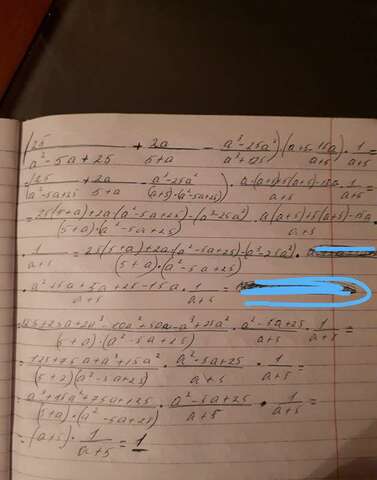 (25/(a²-5a+25) + 2a/(5+a) - (a³-25a²)/(a³+125))·(a+5-15a/(a+5))·1/(a+5)
(25/(a²-5a+25) + 2a/(5+a) - (a³-25a²)/((a+5)·(a²-5a+25)))· a·(a+5)+5(a+5)-15a/(a+5)·1/(a+5) =
= (25(5+a)+2a·(a²-5a+25)-(a³-25a²))/((5+a)·(a²-5a+25)) · (a(a+5)+5(a+5)-15a)/(a+5)
· 1/(a+5) = (25(5+a)+2a·(a²-5a+25)-(a³-25a²))/((5+a)·(a²-5a+25)) ·
· (a²+5a+5a+25-15a)/(a+5) · 1/(a+5) =
(125+25a+2a³-10a²+50a-a³+25a²)/((5+a)·(a²-5a+25)) · (a²-5a+25)/(a+5) · 1/(a+5) =
= (125+75a+a³+15a²)/((5+a)(a²-5a+25)) · (a²-5a+25)/(a+5) · 1/(a+5) =
= (a³+15a²+75a+125)/((5+a)·(a²-5a+25)) · (a²-5a+25)/(a+5) · 1/(a+5) =
= (a+5)·1/(a+5) = 1